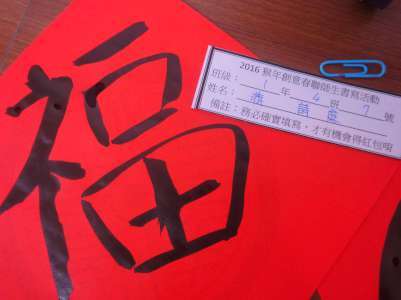 福
2016 猴年創意春聯師生書寫活動
班級： 1 年 4 班 7 號
姓名：
備註：務必確實填寫，才有機會得紅包哦